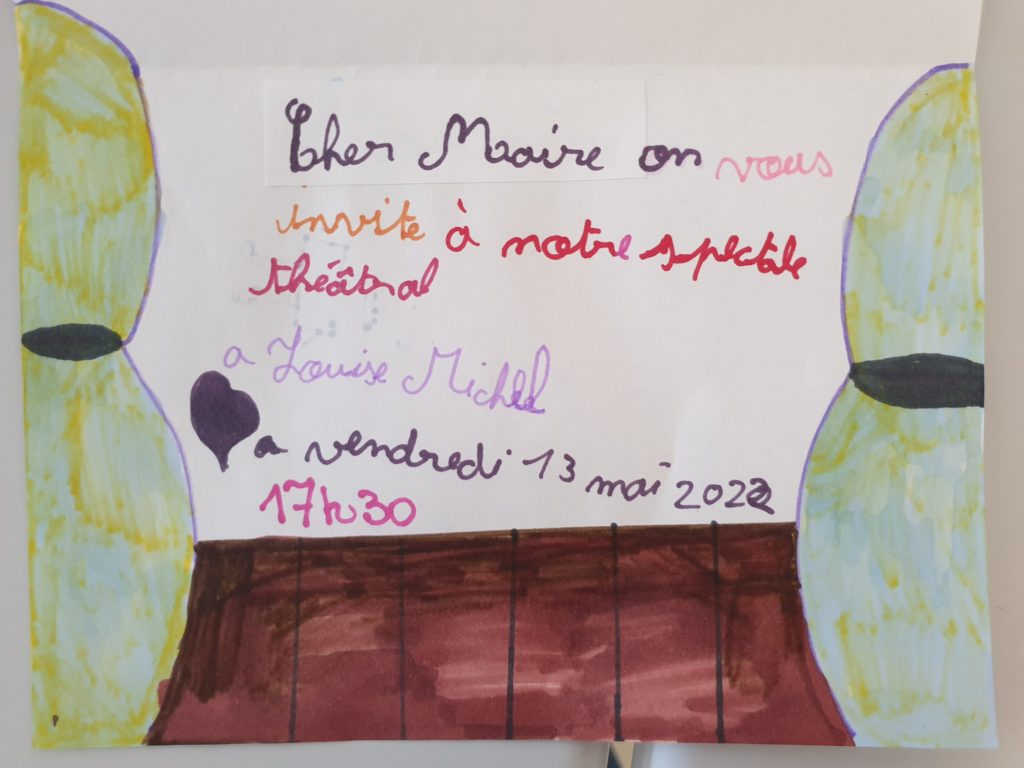 Cher Maire on vous
invite à notre spectale
théâtral
a Louise Michel
a vendredi 13 mai 2022
17h30